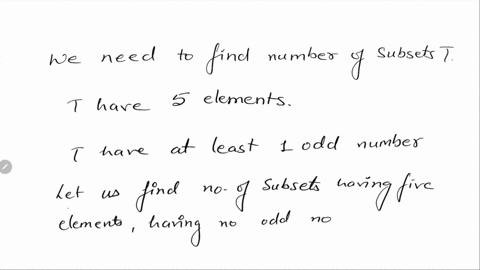 We need to find number of subsets T.
T have 5 elements.
T have at least 1 odd number
Let us find no. of subsets having five
elements, having no odd no